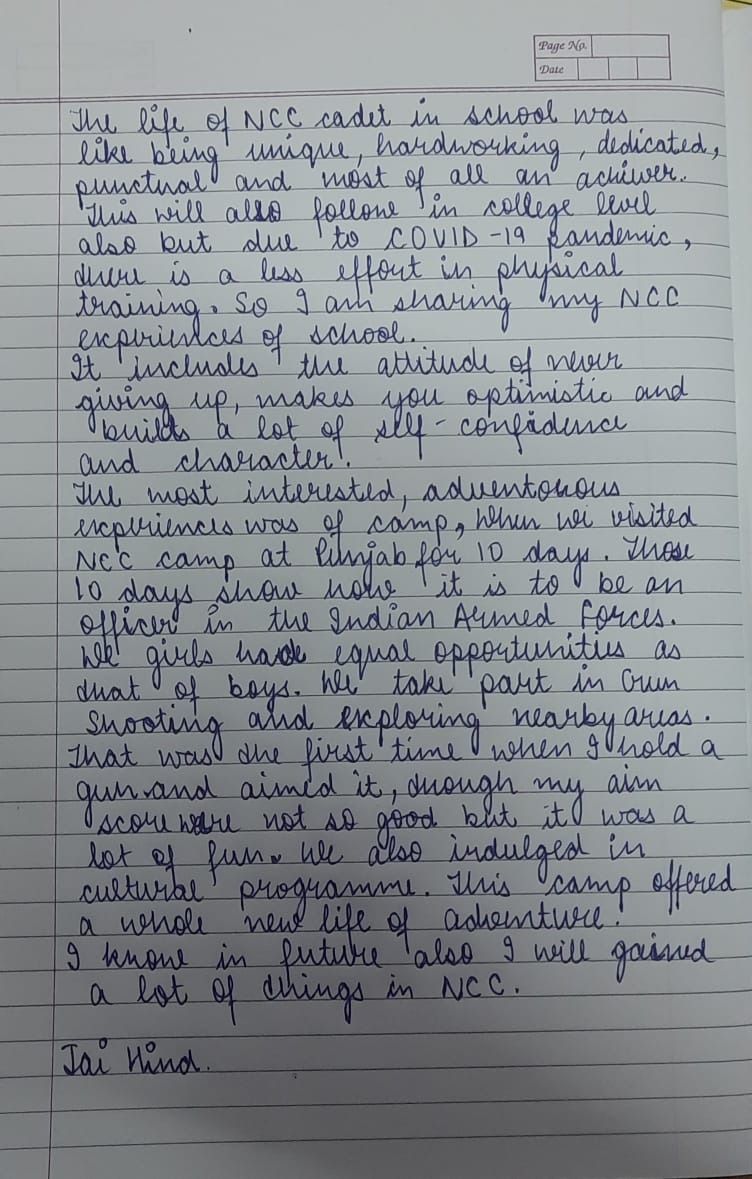 Page No.
Date
The life of NCC cadet in school was
like being unique, hardworking, dedicated,
punctual and most of all an achiver.
This will also follow in college level
also but due to COVID-19 pandemic,
there is a less effort in physical
training. So I am sharing my NCC
experiences of school.
It includes the attitude of never
giving up, makes you optimistic and
builds a lot of self-confidence
and character.
The most interested, adventorous
experiences was of camp, when we visited
NCC camp at Punjab for 10 days. Those
10 days show how it is to be an
officer in the Indian Armed Forces.
We girls have equal opportunities as
that of boys. We take part in Gun
shooting and exploring nearby areas.
That was the first time when I hold a
gun and aimed it, though my aim
score were not so good but it was a
lot of fun. We also indulged in
cultural programme. This camp offered
a whole new life of adventure.
I know in future also I will gained
a lot of things in NCC.
Jai Hind.